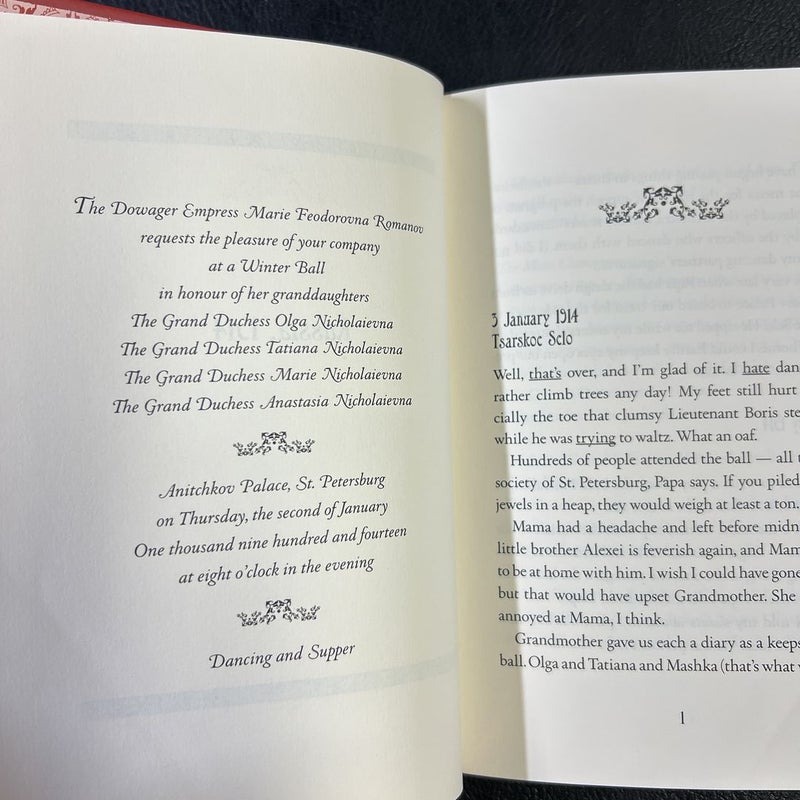 The Dowager Empress Marie Feodorovna Romanov
requests the pleasure of your company
at a Winter Ball
in honour of her granddaughters
The Grand Duchess Olga Nicholaievna
The Grand Duchess Tatiana Nicholaievna
The Grand Duchess Marie Nicholaievna
The Grand Duchess Anastasia Nicholaievna
Anitchkov Palace, St. Petersburg
on Thursday, the second of January
One thousand nine hundred and fourteen
at eight o'clock in the evening
Dancing and Supper
3 January 1914
Tsarskoe Selo
Well, that's over, and I'm glad of it. I hate dan
rather climb trees any day! My feet still hurt
cially the toe that clumsy Lieutenant Boris ste
while he was trying to waltz. What an oaf.
Hundreds of people attended the ball — all t
society of St. Petersburg, Papa says. If you piled
jewels in a heap, they would weigh at least a ton.
Mama had a headache and left before midn
little brother Alexei is feverish again, and Mam
to be at home with him. I wish I could have gone
but that would have upset Grandmother. She
annoyed at Mama, I think.
Grandmother gave us each a diary as a keeps
ball. Olga and Tatiana and Mashka (that's what
1